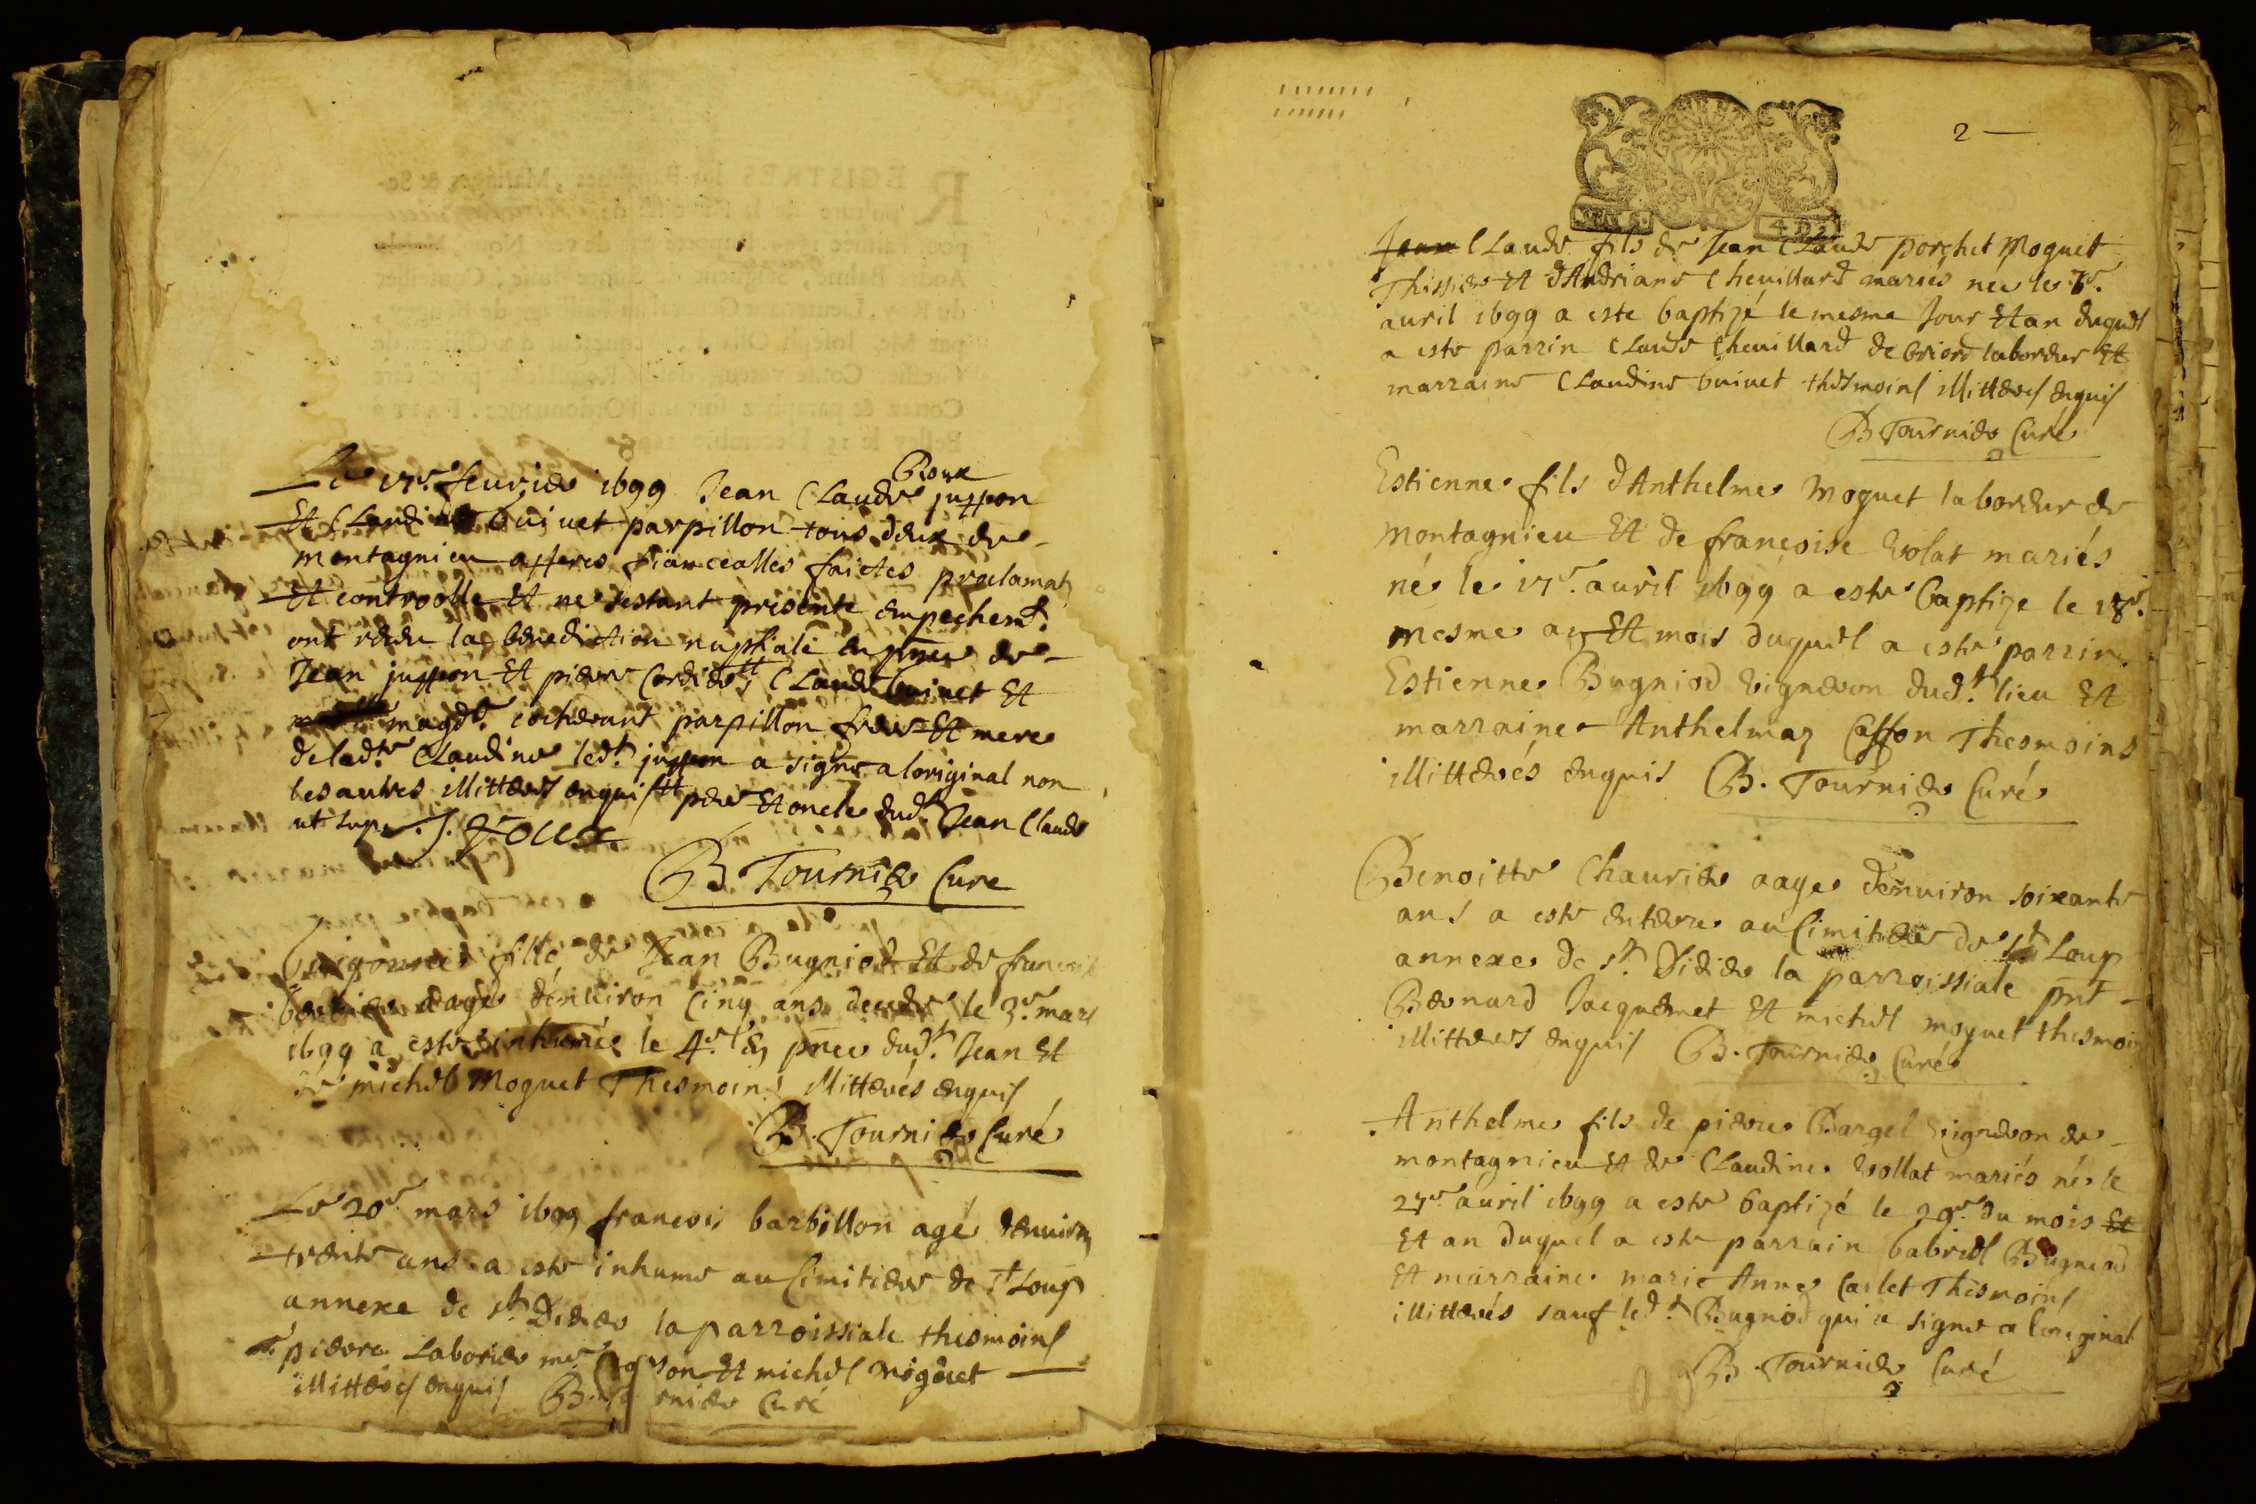 Le 17e. feurier 1699 Jean Claude Roux juppon
Et Claudine Guinet parpillon tous deux de
montagnieu apres fiancealles faictes proclamat
Et controolle Et ne sestant presenté empechent.
ont receu la benediction nuptiale en pnce de
Jean juppon Et pierre Cordier Claude Guinet Et
magde. parpillon frere Et mere
de ladte. Claudine ledt. juppon a signe a loriginal non
les autres illitteres enquis pere Et oncle dudt. Jean Claude
ut supra J. Roux
B Tournier Cure
fille de Jean Bugniod Et de francoise
aagee denuiron cinq ans decedee le 3e. mars
1699 a este inhumée le 4e. En pnce dudt. Jean Et
de michel Moguet Thesmoins illitterés enquis
B. Tournier Curé
Le 20e mars 1699 francois barbillon agé denuiron
trente ans a este inhume au Cimitiere de St Loup
annexe de st. Didier la parroissiale thesmoins
pierre Laborier Et michel Moguet
illitteres enquis B. Tournier Curé
2
4 D
Jean Claude fils de Jean Claude porchet Moguet
Thissier Et dAndriane Cheuillard mariés née le
auril 1699 a este baptizé le mesme Jour Et an duquel
a este parrin Claude Cheuillard de briord laboreur Et
marraine Claudine Guinet thesmoins illitteres enquis
B Tournier Curé
Estienne fils dAnthelme Moguet laboreur de
Montagnieu Et de francoise Volat mariés
né le 17e. auril 1699 a este baptize le 18e.
mesme an Et mois duquel a este parrin
Estienne Bugniod Vigneron dudt. lieu Et
marraine Anthelmaz Casson Thesmoins
illitterés enquis B. Tournier Curé
Benoitte Chaurier aagee denuiron soixante
ans a este enterree au Cimitiere de St Loup
annexe de st. Didier la parroissiale pnt
Bernard Jacquemet Et michel moguet thesmoins
illitteres enquis B. Tournier Curé
Anthelme fils de pierre Bargel Vigneron de
montagnieu Et de Claudine Vollat mariés né le
27e. auril 1699 a este baptizé le 29e. du mois Et
Et an duquel a este parrain Gabriel Bugniod
Et marraine marie Anne Carlet Thesmoins
illitterés sauf ledt. Bugniod qui a signe a loriginal
B. Tournier Curé